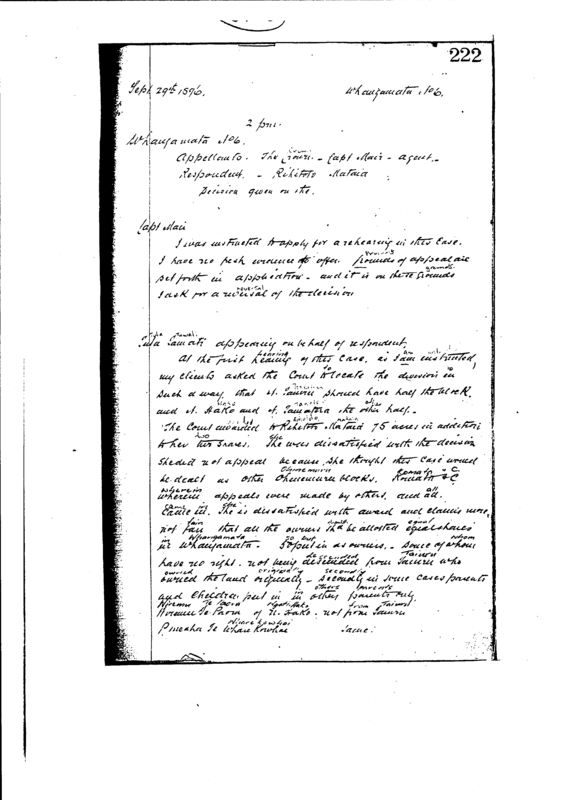 222
Sept 29th 1896. Whangamata No 6.
2 pm.
Whangamata No 6.
Appellants. The Crown - Capt Mair - agent -
Respondent. - Rihitoto Mataia
Decision given on the.
Capt Mair
I was instructed to apply for a rehearing in this case.
I have no fresh evidence to offer. grounds of appeal are
set forth in application - and it is on these grounds
I ask for a reversal of the decision
Tamati appearing on behalf of respondent.
At the first hearing of this case, as I am instructed,
my clients asked the Court to locate the division in
such a way that N. Tauiri should have half the block,
and N. Hako and N. Tamatera the other half.
The Court awarded to Rihitoto Mataia 75 acres in addition
to her two shares. She was dissatisfied with the decision
She did not appeal because she thought this case would
be dealt as other Ohinemuri blocks. Komata &C
wherein appeals were made by others, and all
came in. She is dissatisfied with award and claims more,
not fair that all the owners shd be allotted equal shares
in Whangamata. 50 put in as owners, - some of whom
have no right. not being descended from Tauiri who
owned the land originally - secondly in some cases parents
and children put in in others parents only
of N. Hako. not from Tauiri
Te Wharekowhai same.